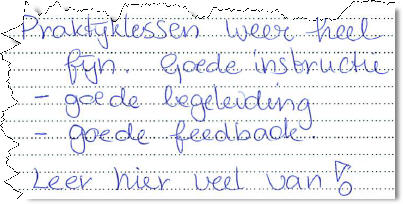 Praktyklessen weer heel
fijn. Goede instructie
- goede begeleiding
- goede feedback.
Leer hier veel van!